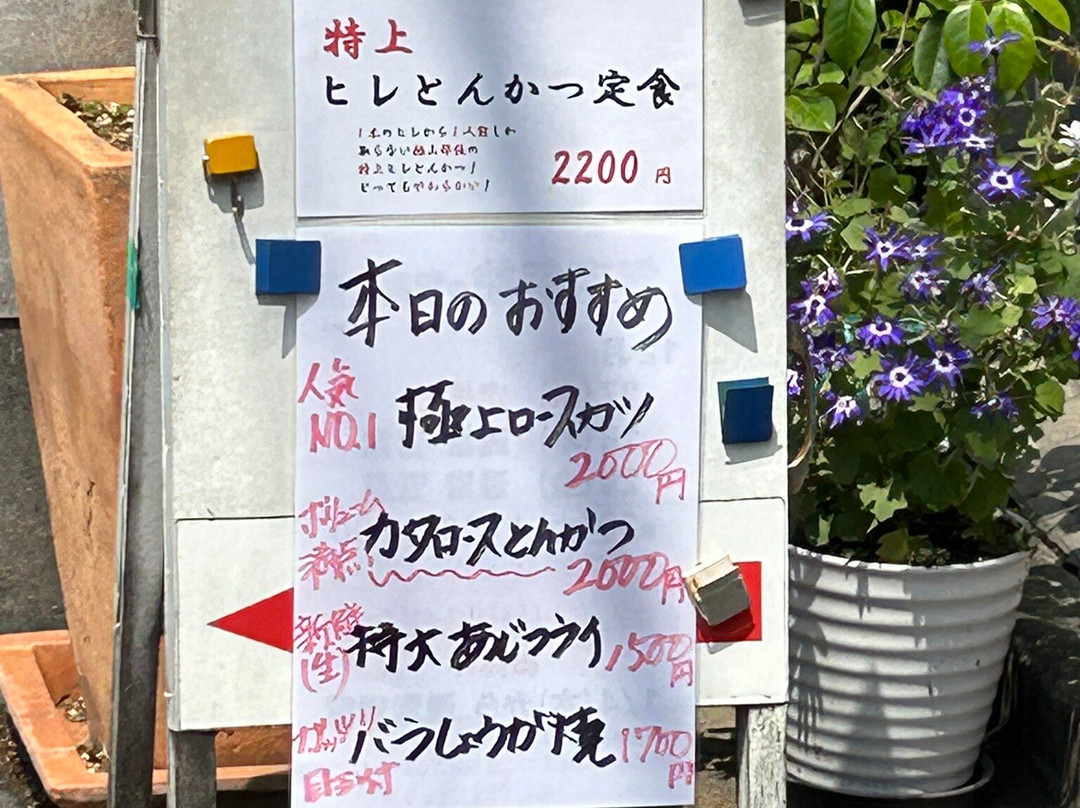 特上
ヒレとんかつ定食
1本のヒレから1人前しか
取らない
特上ヒレとんかつ!
とってもやわらかい!
2200円
本日のおすすめ
人気
NO.1
極上ロースカツ
2000円
ボリューム
満点
カタロースとんかつ
2000円
(生)
特大あじフライ
1500円
ガッツリ
バラしょうが焼
1700円
目玉付